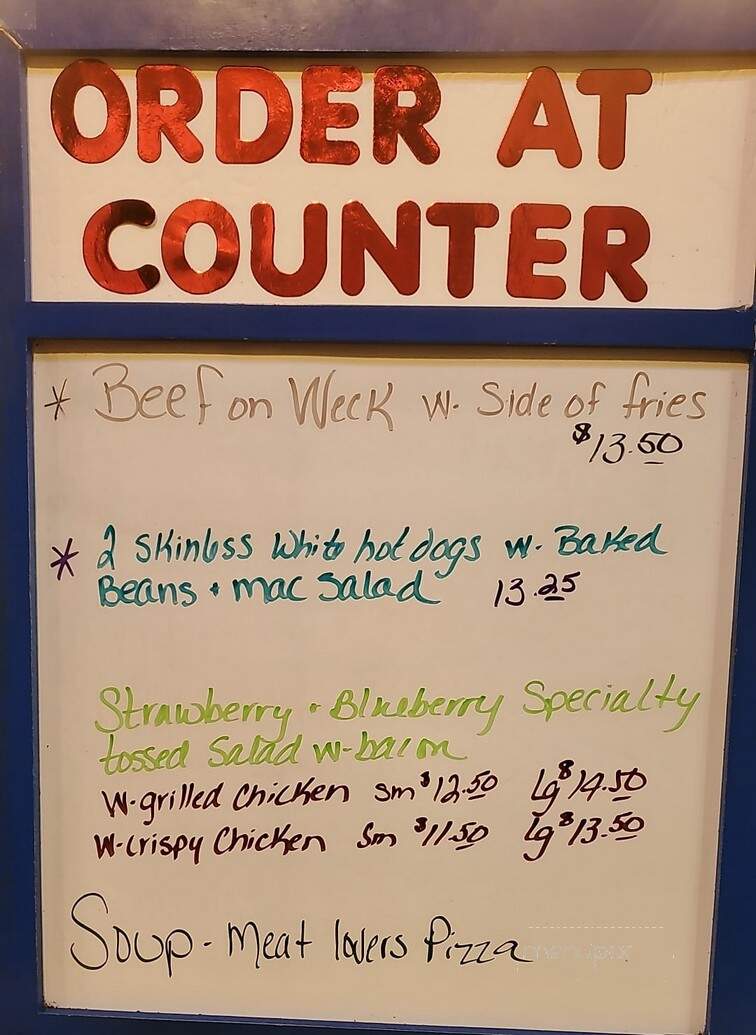 ORDER AT
COUNTER
* Beef on Weck w. Side of fries
$13.50
* 2 Skinless White hot dogs w. Baked
Beans + mac Salad 13.25
Strawberry + Blueberry Specialty
tossed Salad w-bacon
W-grilled Chicken sm $12.50 Lg $14.50
W-crispy Chicken Sm $11.50 Lg $13.50
Soup - Meat lovers Pizza
menupix